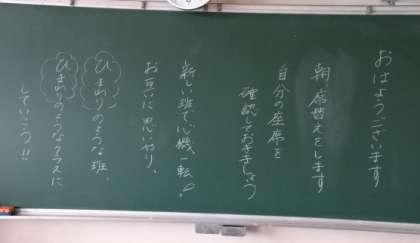 おはようございます
朝 席替えをします
自分の座席を
確認しておきましょう
新しい班で心機一転!
お互いに思いやり、
ひまわりのような班、
ひまわりのようなクラスに
していこう!!